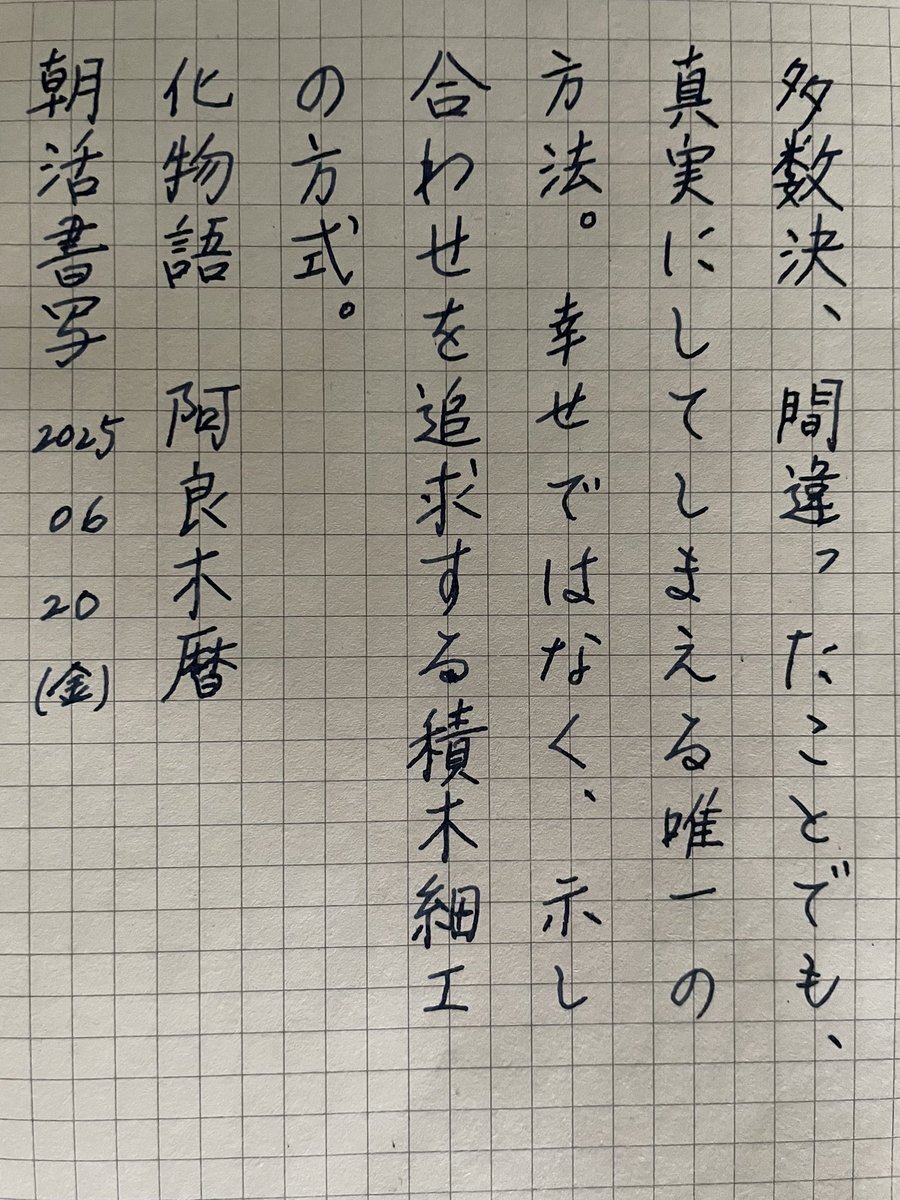 多数決、間違ったことでも、
真実にしてしまえる唯一の
方法。幸せではなく、示し
合わせを追求する積木細工
の方式。
化物語 阿良木暦
朝活書写 2025 06 20 (金)